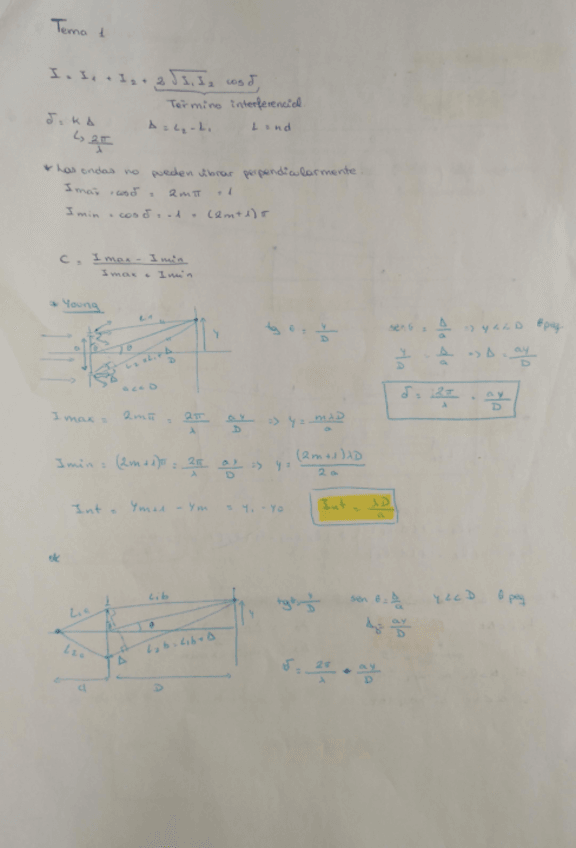 Tema 1
I = I1 + I2 + 2 √I1 I2 cos δ
Término interferencial.
δ = K Δ Δ = L2 - L1 L = nd
↳ 2π/λ
* Las ondas no pueden vibrar perpendicularmente.
I max = cos δ = 2mπ = 1
I min = cos δ = -1 = (2m+1)π
C = (I max - I min)/(I max + I min)
* Young
L1
Y
a
θ
L2 = L1 + Δ
D
Δ
a << D
tg θ = y/D sen θ = Δ/a => y << D θ peq
y/D = Δ/a => Δ = ay/D
δ = 2π/λ · ay/D
I max = 2mπ = 2π/λ ay/D => y = mλD/a
I min = (2m+1)π = 2π/λ ay/D => y = (2m+1)λD/2a
Int = Ym+1 - Ym = Y1 - Y0 Int = λD/a
*
L1a
L1b
Y
θ
L2a
Δ
L2b = L1b + Δ
d
D
tg θ = y/D sen θ = Δ/a y << D θ peq
= ay/D
δ = 2π/λ * ay/D